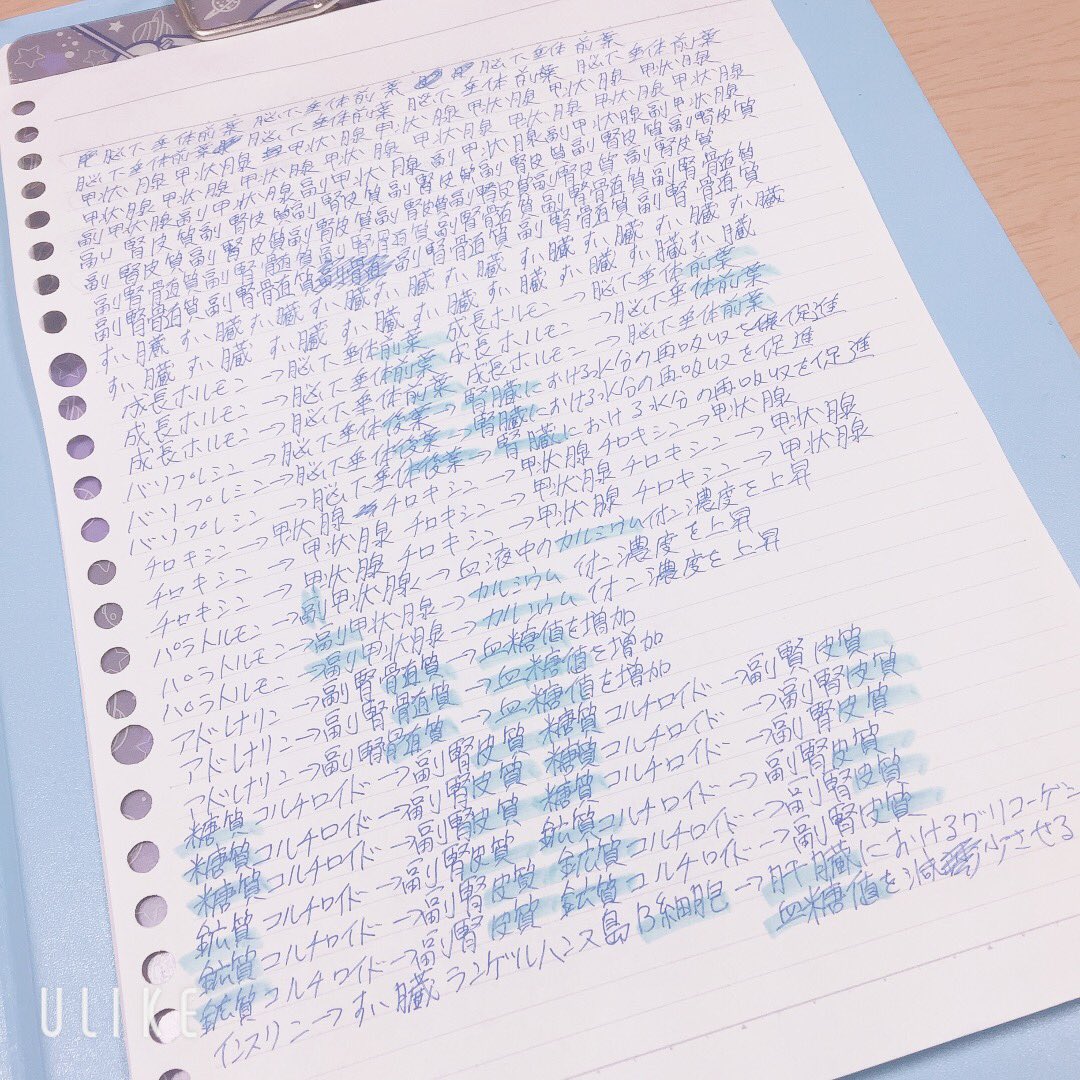 脳下垂体前葉 脳下垂体前葉 脳下垂体前葉
脳下垂体前葉 脳下垂体前葉 脳下垂体前葉 脳下垂体前葉
甲状腺 甲状腺 甲状腺 甲状腺 甲状腺 甲状腺 甲状腺
甲状腺 甲状腺 甲状腺 甲状腺 甲状腺 甲状腺 甲状腺
副甲状腺副甲状腺副甲状腺副甲状腺副甲状腺副甲状腺
副腎皮質副腎皮質副腎皮質副腎皮質副腎皮質副腎皮質
副腎皮質副腎皮質副腎皮質副腎皮質副腎皮質副腎皮質
副腎骨道質副腎髄質副腎骨道質副腎骨道質副腎骨道質
副腎骨道質副腎骨道質 副腎骨道質副腎骨道質副腎骨道質
すい臓 すい臓 すい臓 すい臓 すい臓 すい臓 すい臓
すい臓 すい臓 すい臓 すい臓 すい臓 すい臓 すい臓
成長ホルモン→脳下垂体前葉 成長ホルモン→脳下垂体前葉
成長ホルモン→脳下垂体前葉 成長ホルモン→脳下垂体前葉
バソプレシン→脳下垂体後葉→腎臓における水分の再吸収を促進
バソプレシン→脳下垂体後葉→腎臓における水分の再吸収を促進
チロキシン→甲状腺 チロキシン→甲状腺 チロキシン→甲状腺
チロキシン→甲状腺 チロキシン→甲状腺 チロキシン→甲状腺
パラトルモン→副甲状腺→血液中のカルシウムイオン濃度を上昇
パラトルモン→副甲状腺→カルシウムイオン濃度を上昇
パラトルモン→副甲状腺→カルシウムイオン濃度を上昇
アドレナリン→副腎髄質→血糖値を増加
アドレナリン→副腎髄質→血糖値を増加
アドレナリン→副腎髄質→血糖値を増加
糖質コルチロイド→副腎皮質 糖質コルチロイド→副腎皮質
糖質コルチロイド→副腎皮質 糖質コルチロイド→副腎皮質
糖質コルチロイド→副腎皮質 糖質コルチロイド→副腎皮質
鉱質コルチロイド→副腎皮質 鉱質コルチロイド→副腎皮質
鉱質コルチロイド→副腎皮質 鉱質コルチロイド→副腎皮質
鉱質コルチロイド→副腎皮質 鉱質コルチロイド→副腎皮質
インスリン→すい臓ランゲルハンス島B細胞→肝臓におけるグリコーゲン
血糖値を減少させる
ULIKE